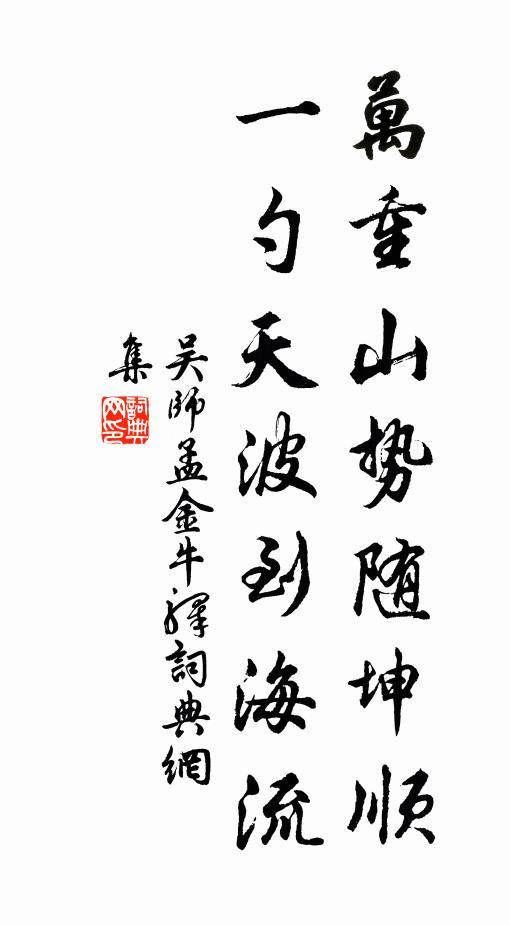 萬重山勢随坤順
一勺天波到海流
吴師孟金牛驛詞典網
集
詞典
网印